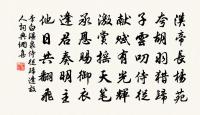 漢帝長楊苑
夸胡羽獵歸
子雲叨侍從
獻賦有光輝
激賞搖天筆
承恩賜御衣
逢君奏明主
他日共翻飛
李白溫泉侍從歸逢故
人詞典網書